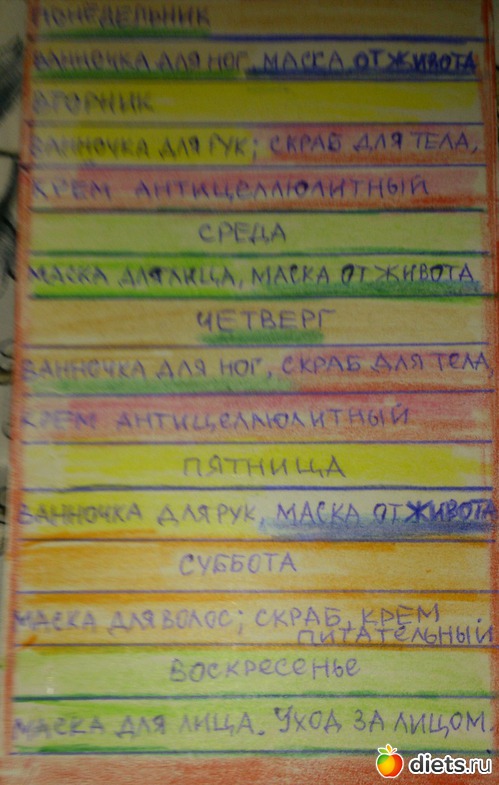 ПОНЕДЕЛЬНИК
ВАННОЧКА ДЛЯ НОГ, МАСКА ОТ ЖИВОТА
ВТОРНИК
ВАННОЧКА ДЛЯ РУК; СКРАБ ДЛЯ ТЕЛА,
КРЕМ АНТИЦЕЛЛЮЛИТНЫЙ
СРЕДА
МАСКА ДЛЯ ЛИЦА, МАСКА ОТ ЖИВОТА
ЧЕТВЕРГ
ВАННОЧКА ДЛЯ НОГ, СКРАБ ДЛЯ ТЕЛА,
КРЕМ АНТИЦЕЛЛЮЛИТНЫЙ
ПЯТНИЦА
ВАННОЧКА ДЛЯ РУК, МАСКА ОТ ЖИВОТА
СУББОТА
МАСКА ДЛЯ ВОЛОС; СКРАБ, КРЕМ
ПИТАТЕЛЬНЫЙ
ВОСКРЕСЕНЬЕ
МАСКА ДЛЯ ЛИЦА. УХОД ЗА ЛИЦОМ.
diets.ru